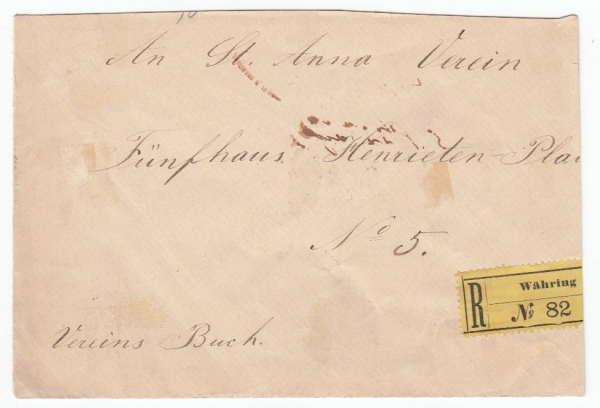 An St. Anna Verein
Fünfhaus Henrieten-Pla
Nº 5.
Vereins Buch.
R
Währing
№ 82